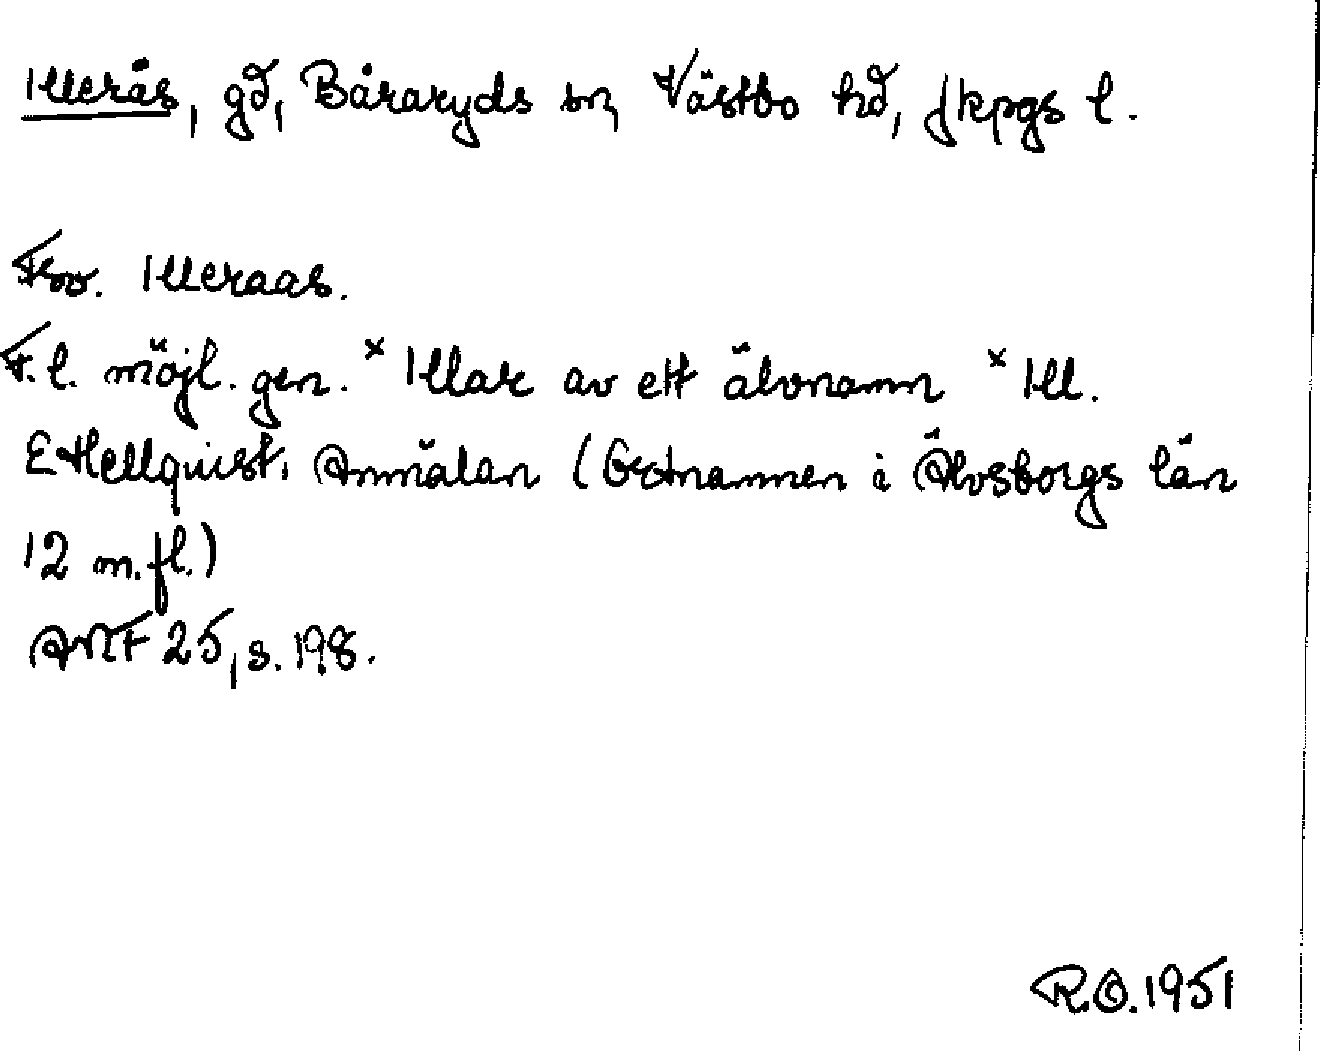 Illerås, gd, Båraryds sn, Västbo hd, Jkpgs l.
Fsv. Illeraas.
F.l. möjl. gen. ×Illar av ett älvnamn ×Ill.
E Hellquist, Anmälan (Ortnamnen i Älvsborgs län
12 m.fl.)
ANF 25, s. 198.
R.O. 1951